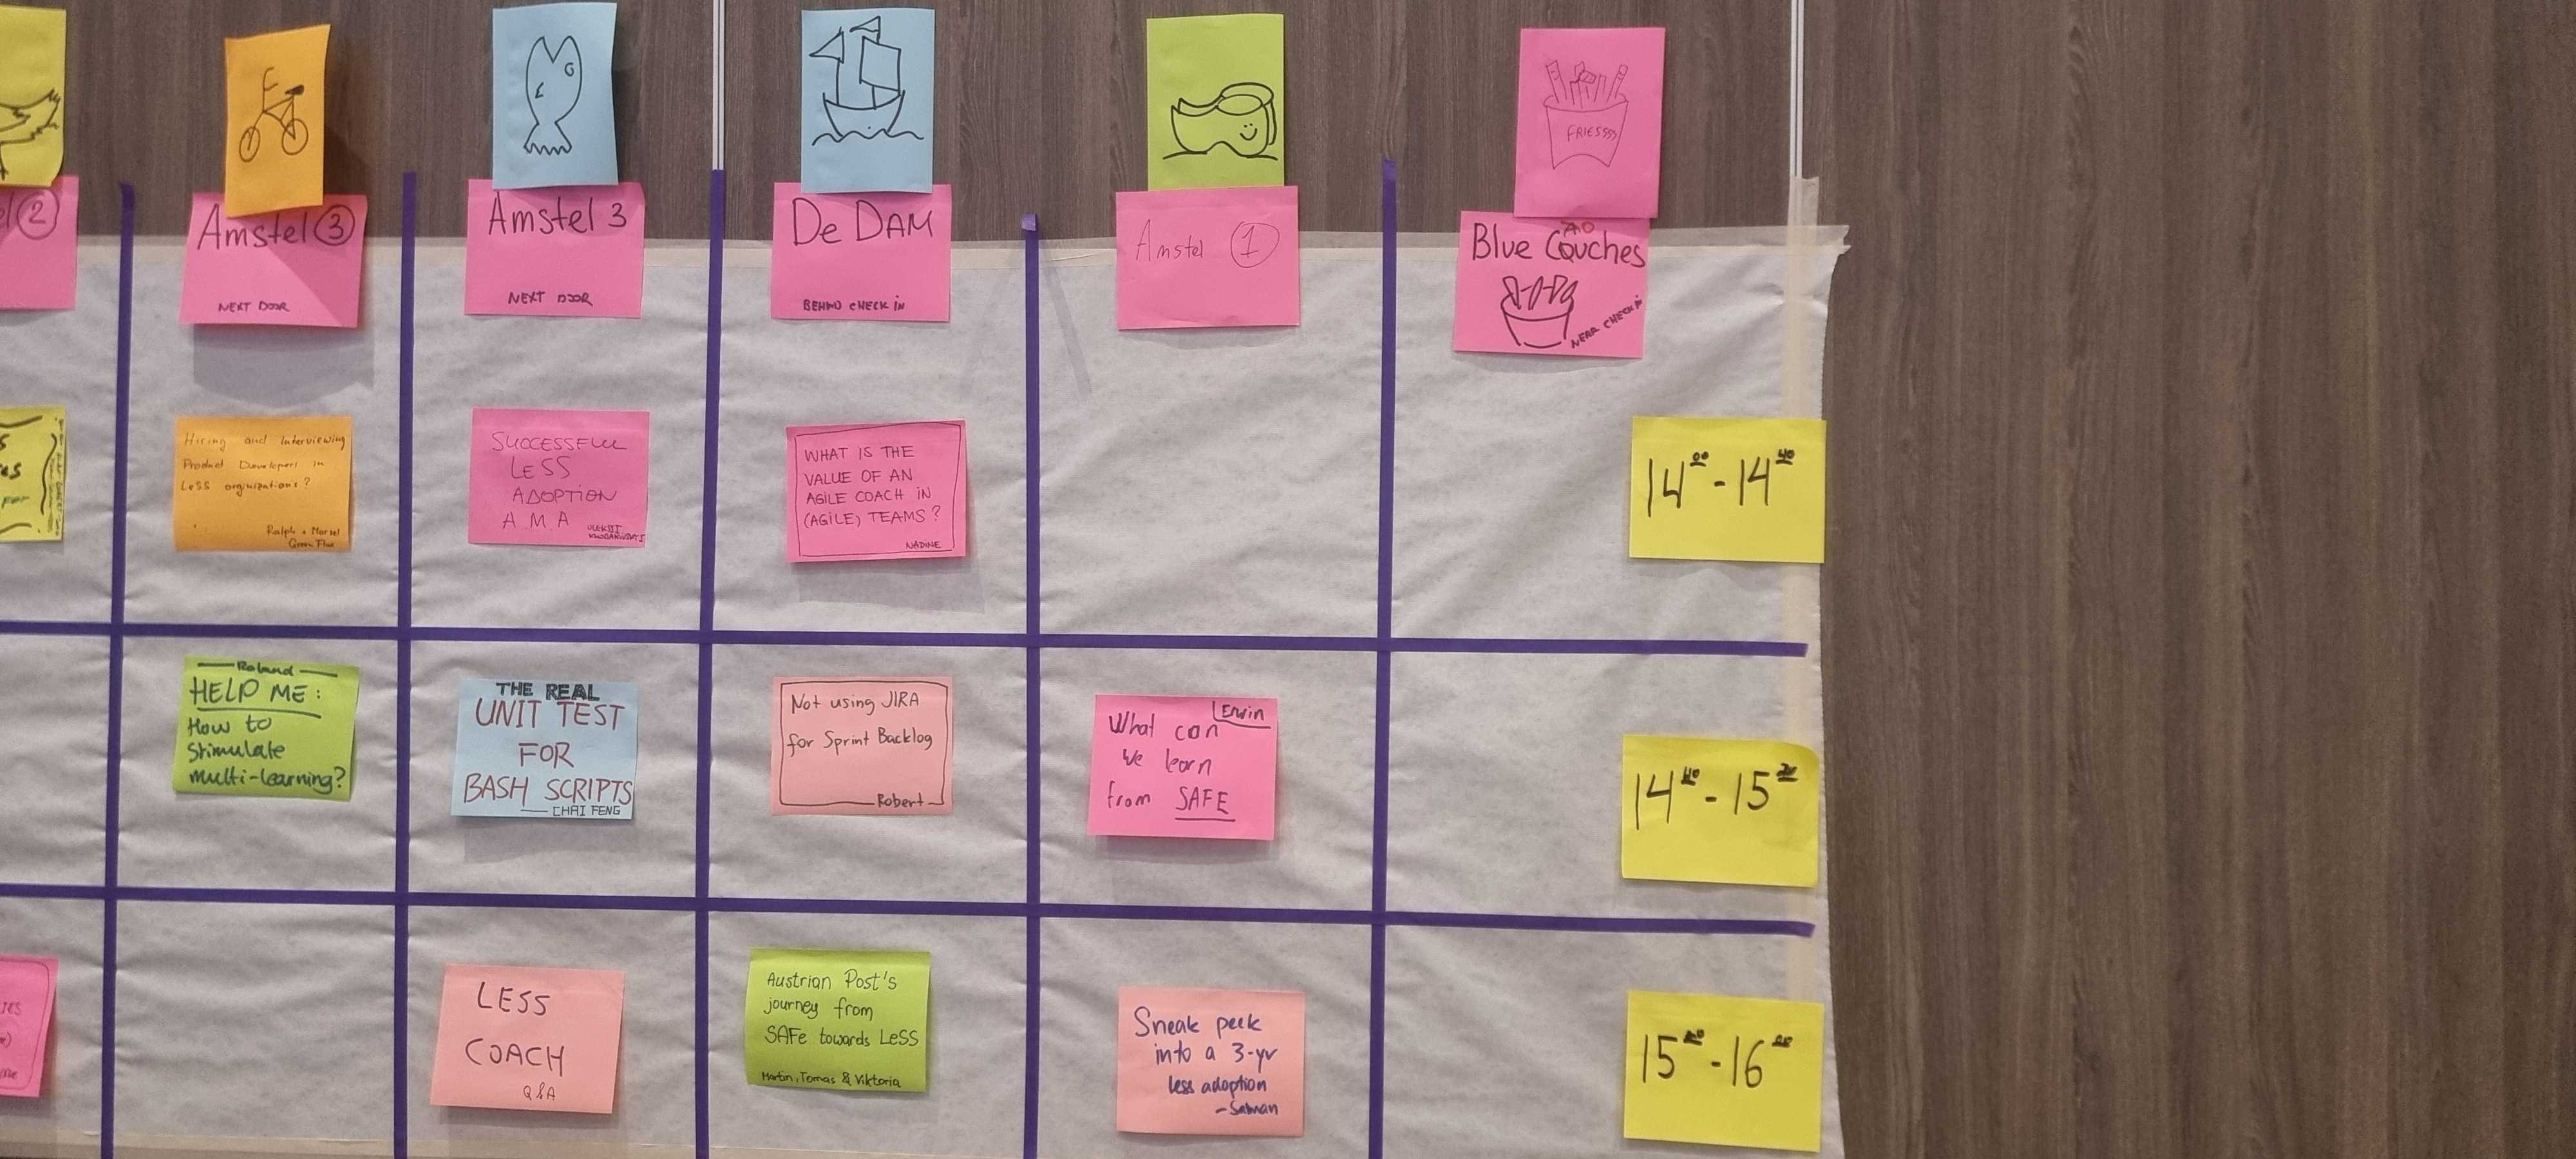 FRIESSSS
2
Amstel 3
NEXT DOOR
Amstel 3
NEXT DOOR
De DAM
BEHIND CHECK IN
Amstel 1
Blue Couches
NEAR CHECK IN
Hiring and Interviewing
Product Developers in
LeSS orginizations?
Ralph + Marsel
SUCCESSFULL
LESS
ADOPTION
A M A
WHAT IS THE
VALUE OF AN
AGILE COACH IN
(AGILE) TEAMS?
NADINE
14 00 - 14 40
Roland
HELP ME:
How to
Stimulate
multi-learning?
THE REAL
UNIT TEST
FOR
BASH SCRIPTS
— CHAI FENG
Not using JIRA
for Sprint Backlog
Robert
Erwin
What can
we learn
from SAFE
14 40 - 15 20
LESS
COACH
Q&A
Austrian Post's
journey from
SAFe towards LeSS
Martin, Tomas & Viktoria
Sneak peek
into a 3-yr
less adoption
- Salman
15 20 - 16 00